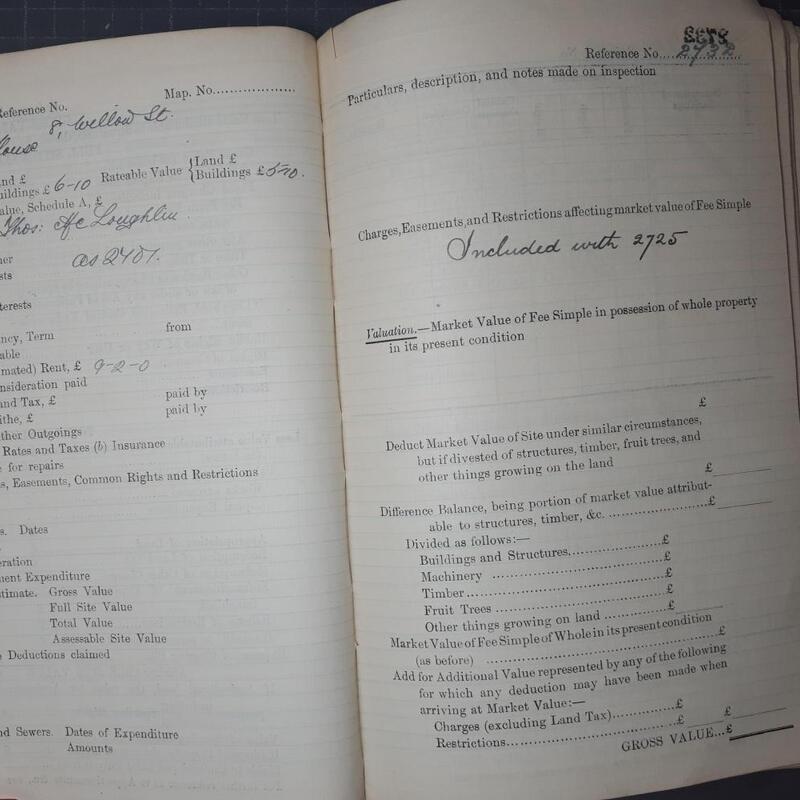 Reference No.
Map. No....................
House 8, Willow St.
Land £
Buildings £ 6-10 Rateable Value { Land £
Buildings £ 5-10.
Value, Schedule A, £
Thos: Mc Loughlin
as 2701.
from
ncy, Term
able
mated) Rent, £ 9-2-0
nsideration paid
and Tax, £ paid by
ithe, £ paid by
ther Outgoings
Rates and Taxes (b) Insurance
e for repairs
s, Easements, Common Rights and Restrictions
s. Dates
eration
uent Expenditure
stimate. Gross Value
Full Site Value
Total Value
Assessable Site Value
e Deductions claimed
nd Sewers. Dates of Expenditure
Amounts
Reference No. 2732
Particulars, description, and notes made on inspection
Charges, Easements, and Restrictions affecting market value of Fee Simple
Included with 2725
Valuation.—Market Value of Fee Simple in possession of whole property
in its present condition
£
Deduct Market Value of Site under similar circumstances,
but if divested of structures, timber, fruit trees, and
other things growing on the land £
Difference Balance, being portion of market value attribut-
able to structures, timber, &c. ....................£
Divided as follows:—
Buildings and Structures....................£
Machinery ....................£
Timber....................£
Fruit Trees ....................£
Other things growing on land ............£
Market Value of Fee Simple of Whole in its present condition
(as before) ....................£
Add for Additional Value represented by any of the following
for which any deduction may have been made when
arriving at Market Value:—
Charges (excluding Land Tax)............£
Restrictions....................£ £
GROSS VALUE...£